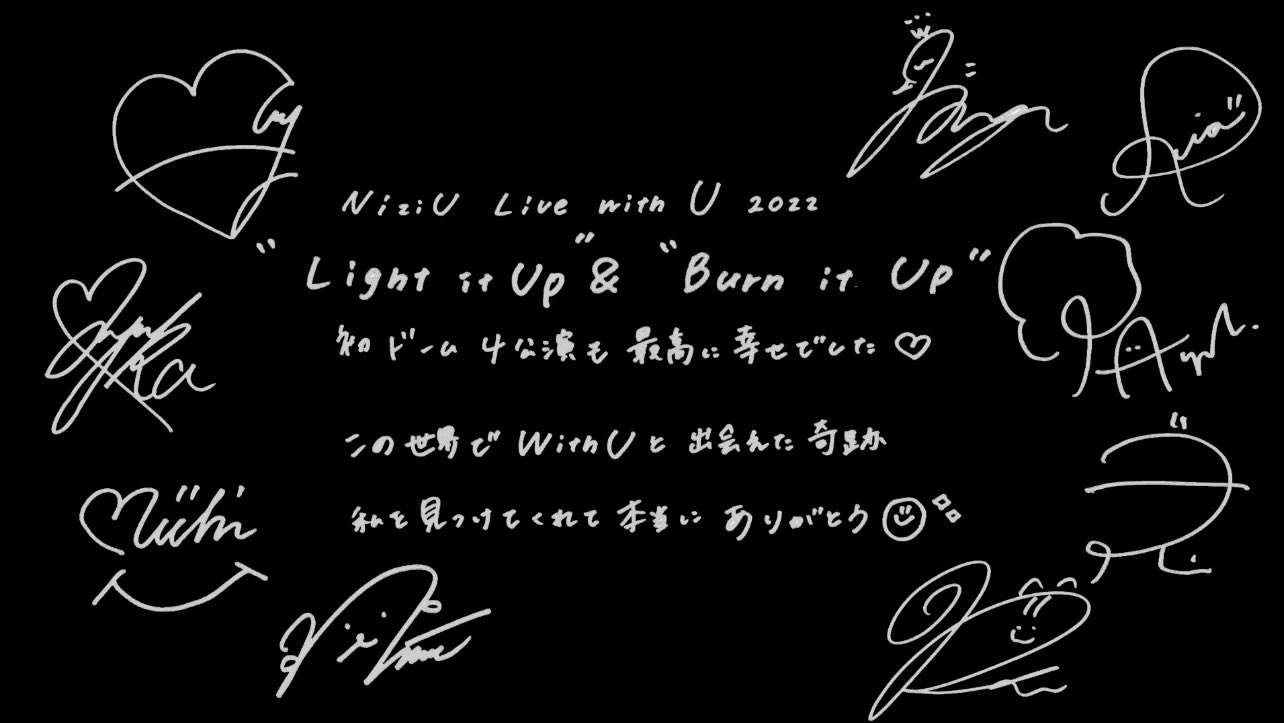 NiziU Live with U 2022
"Light it Up" & "Burn it Up"
初ドーム4公演も最高に幸せでした♡
この世界でWithUと出会えた奇跡
私を見つけてくれて本当にありがとう
Miihi
Ria